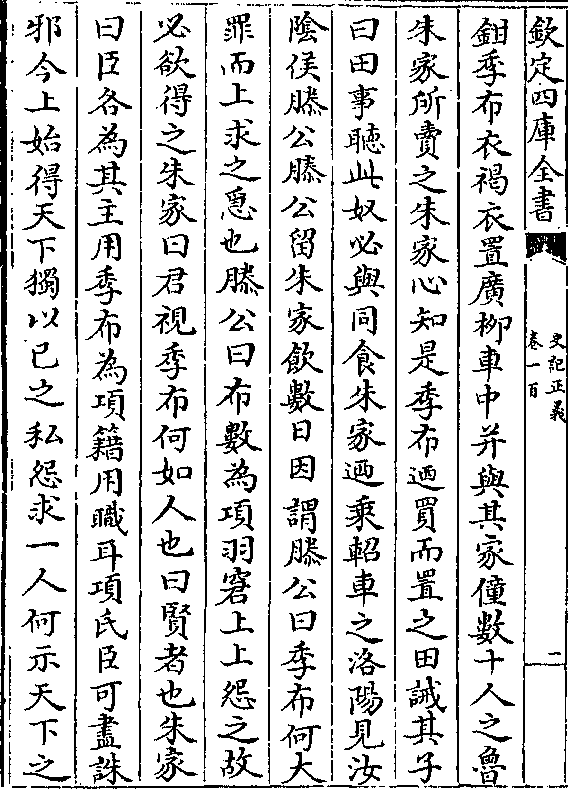 欽定四庫全書
史記正義
卷一百
二
鉗季布衣褐衣置廣柳車中并與其家僮數十人之魯
朱家所賣之朱家心知是季布迺買而置之田誡其子
曰田事聽此奴必與同食朱家迺乘軺車之洛陽見汝
陰侯滕公滕公留朱家飲數日因謂滕公曰季布何大
罪而上求之急也滕公曰布數為項羽窘上上怨之故
必欲得之朱家曰君視季布何如人也曰賢者也朱家
曰臣各為其主用季布為項籍用職耳項氏臣可盡誅
邪今上始得天下獨以己之私怨求一人何示天下之